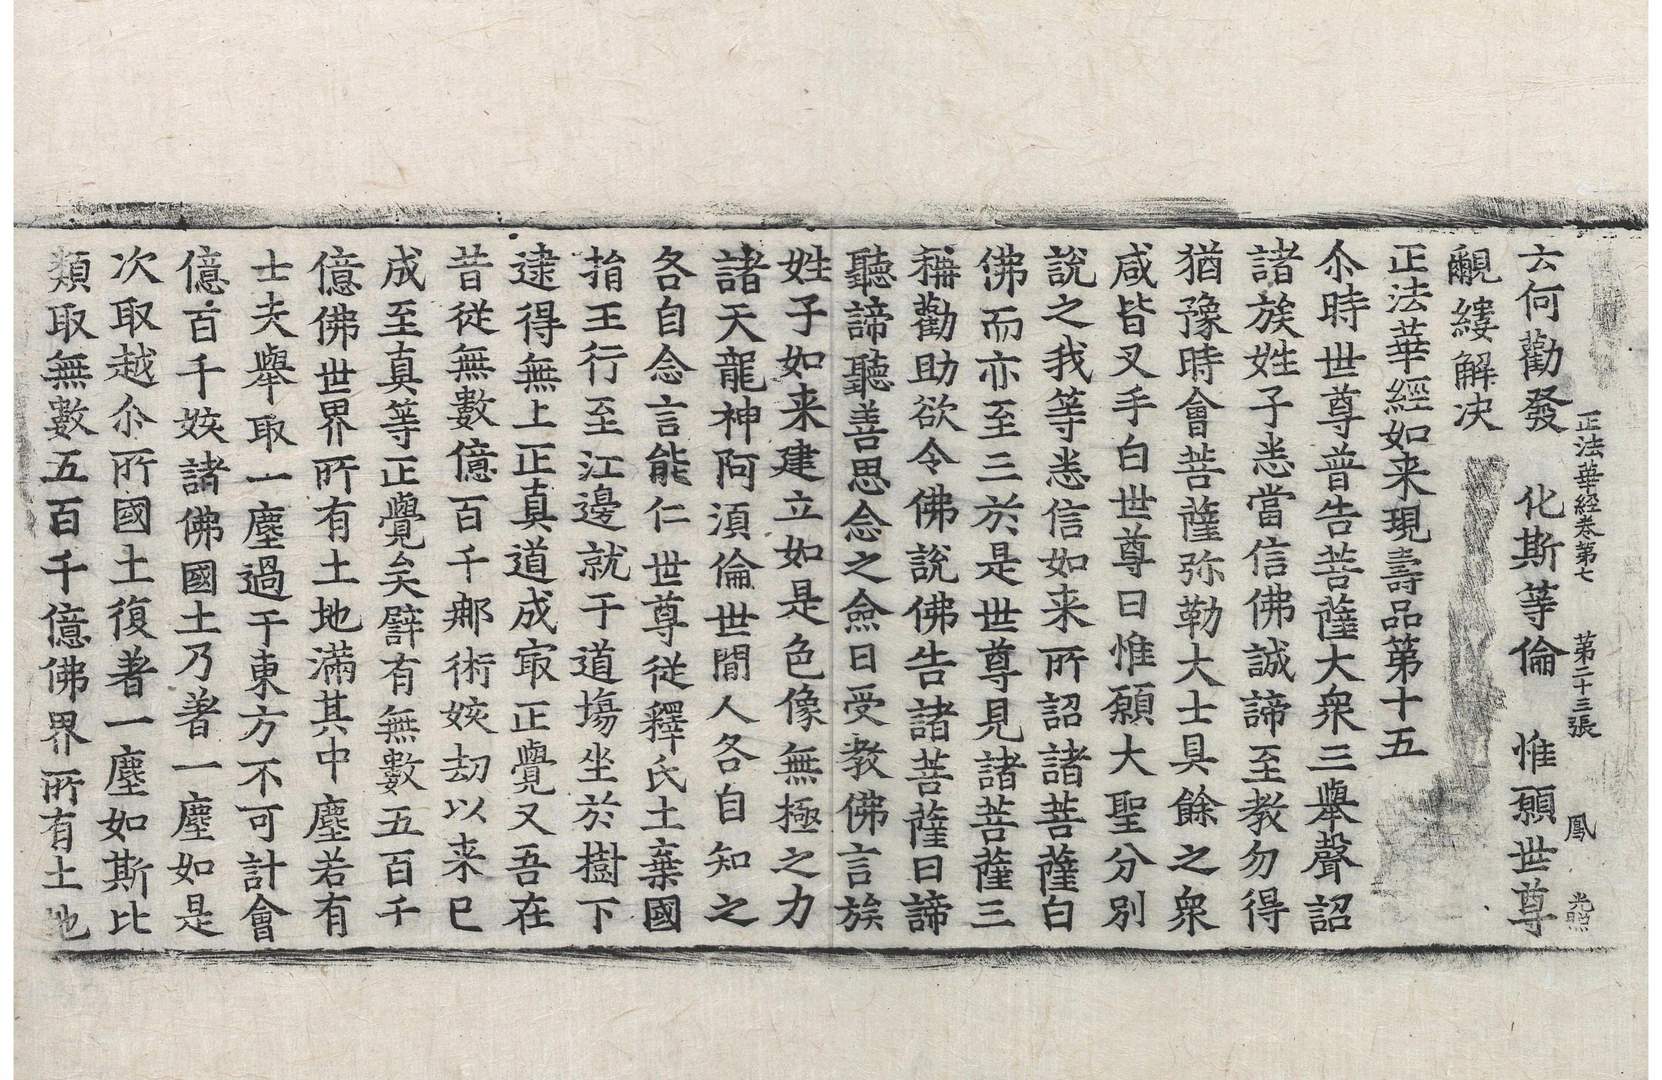 正法華經卷第七　第二十三張　鳳　光照
云何勸發　化斯等倫　惟願世尊
覼縷解决
正法華經如来現壽品第十五
尒時世尊普告菩薩大衆三舉聲詔
諸族姓子悉當信佛誠諦至教勿得
猶豫時會菩薩弥勒大士具餘之衆
咸皆叉手白世尊曰惟願大聖分別
說之我等悉信如来所詔諸菩薩白
佛而亦至三於是世尊見諸菩薩三
稱勸助欲令佛說佛告諸菩薩曰諦
聽諦聽善思念之僉曰受教佛言族
姓子如来建立如是色像無極之力
諸天龍神阿湏倫世間人各自知之
各自念言能仁世尊従釋氏土棄國
捐王行至江邊就于道塲坐於樹下
逮得無上正真道成㝡正覺又吾在
昔従無數億百千㢤術姟劫以来已
成至真等正覺矣譬有無數五百千
億佛世界所有土地滿其中塵若有
士夫舉取一塵過于東方不可計會
億百千姟諸佛國土乃著一塵如是
次取越尒所國土復著一塵如斯比
類取無數五百千億佛界所有土地